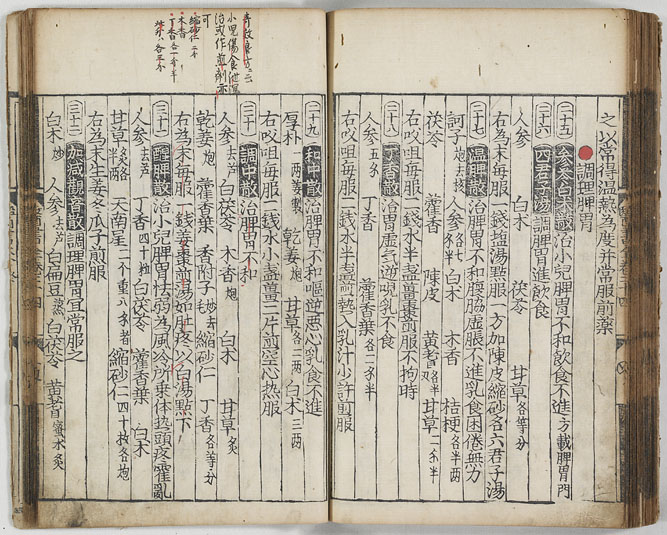 之以常得温熱為度並常服前薬
調理脾胃
三十五 参苓白朮散 治小児脾胃不和飲食不進方載脾胃門
三十六 四君子湯 調脾胃進飲食
人参 白朮 茯苓 甘草各等分
右為末毎服一錢盐湯點服一方加陳皮縮砂名六君子湯
三十七 温脾散 治脾胃不和腹脇虚脹不進乳食困倦無力
訶子炮去核 人参各半 白朮 木香 桔梗各半両
茯苓 藿香 陳皮 黄耆各半 甘草二分半
右㕮咀毎服二錢水半盞薑棗煎服不拘時
三十八 丁香散 治胃虚気逆嘔乳不食
人参五分 丁香 藿香葉各二分半
右㕮咀毎服一錢水半盞煎熱入乳汁少許煎服
三十九 和中散 治脾胃不和嘔逆悪心乳食不進
厚朴二両姜製 乾姜炮 甘草各二両 白朮三両
右㕮咀毎服二錢水小盞薑二片煎空心熱服
三十 調中散 治脾胃不和
人参去芦 白茯苓 木香炮 白朮 甘草炙
乾姜炮 藿香葉 香附子炒去毛 縮砂仁 丁香各等分
右為末毎服一錢姜棗煎湯如肚疼以白湯點下
三十一 醒脾散 治小児脾胃怯弱為風冷所乗体熱頭疼霍亂
人参去芦 丁香四十粒 白茯苓 藿香葉 白朮
甘草炙各半両 天南星二个重八分者 縮砂仁四十枚各炮
右為末生姜冬瓜子煎服
三十二 加減観音散 調理脾胃宜常服之
白朮炒 人参去芦 白扁豆蒸 白茯苓 黄耆蜜水炙
小児傷食泄瀉
治或作煎剤亦
可
縮砂仁
木香
丁香各一分半